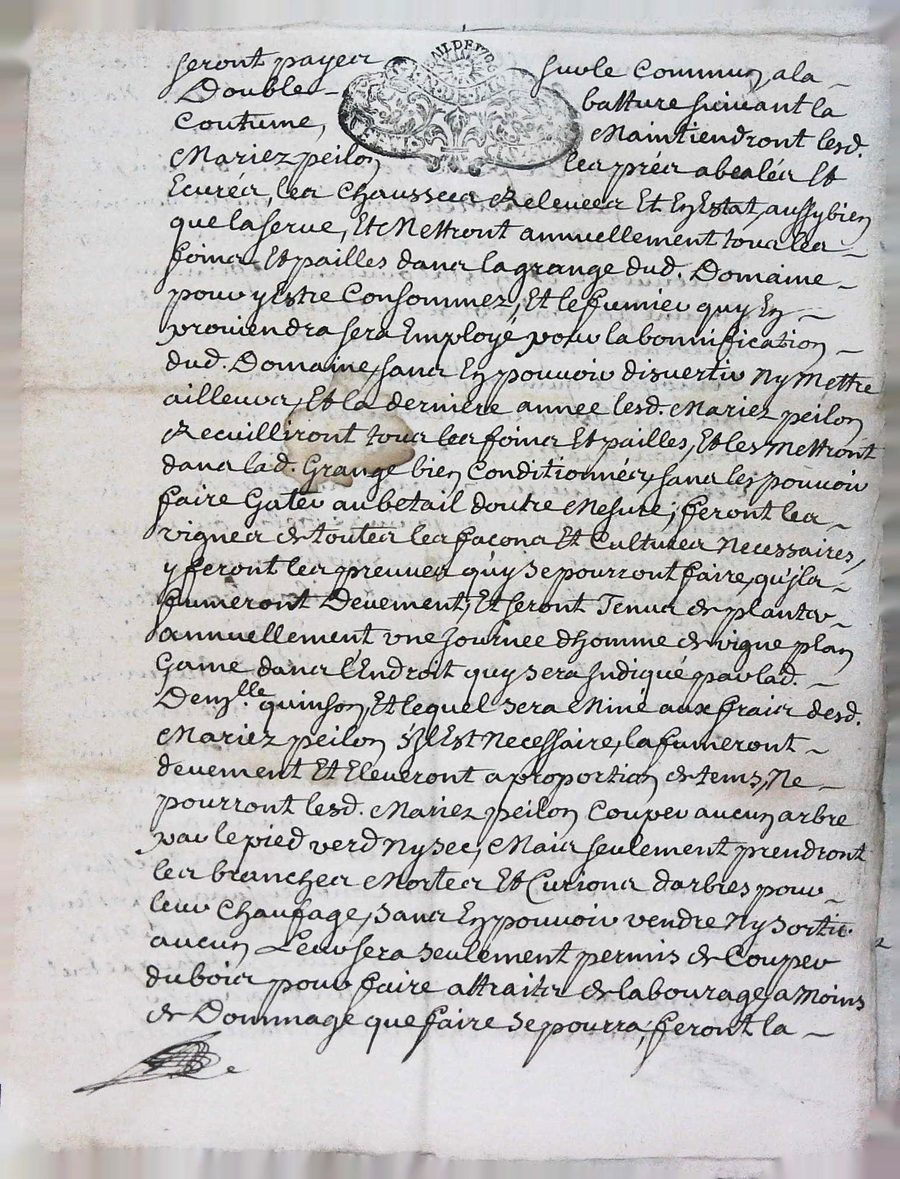 seront payer sur le commun, a la
Double batture suivant la
Coutume, Maintiendront lesd.
Mariez peilon les prés abealés Et
Ecurés, les Chaussees Relevees Et En Estat, aussy bien
que la serve, Et Mettront annuellement tous les
foins Et pailles dans la grange dud. Domaine
pour y Estre Consommez, Et le fumier quy En
proviendra sera Employé pour la bonnification
dud. Domaine, sans En pouvoir divertir Ny Mettre
ailleurs, Et la derniere annee lesd. Mariez peilon
Recuilliront tous les foins Et pailles, Et les Mettront
dans lad. Grange bien Conditionnés, sans les pouvoir
faire Gater au betail d'outre Mesure; feront les
vignes de toutes les façons Et Cultures Necessaires,
y feront les preuves quy se pourront faire, qu'jls
fumeront Devement, Et seront Tenus de planter
annuellement une journee dhomme de vigne plan
Game dans l'Endroit quy sera Judiqué par lad.
Demlle quinson, Et lequel sera Miné aux frais desd.
Mariez peilon S'Jl Est Necessaire, la fumeront
devement Et Eleveront a proportion de tems, Ne
pourront lesd. Mariez peilon Couper aucun arbre
par le pied verd Ny sec, Mais seulement prendront
les branches Mortes Et Curions darbres pour
leur Chaufage, sans En pouvoir vendre Ny sortir
aucun Leur sera seulement permis de Couper
du bois pour faire attraits de labourage, a Moins
de Dommage que faire se pourra; feront la